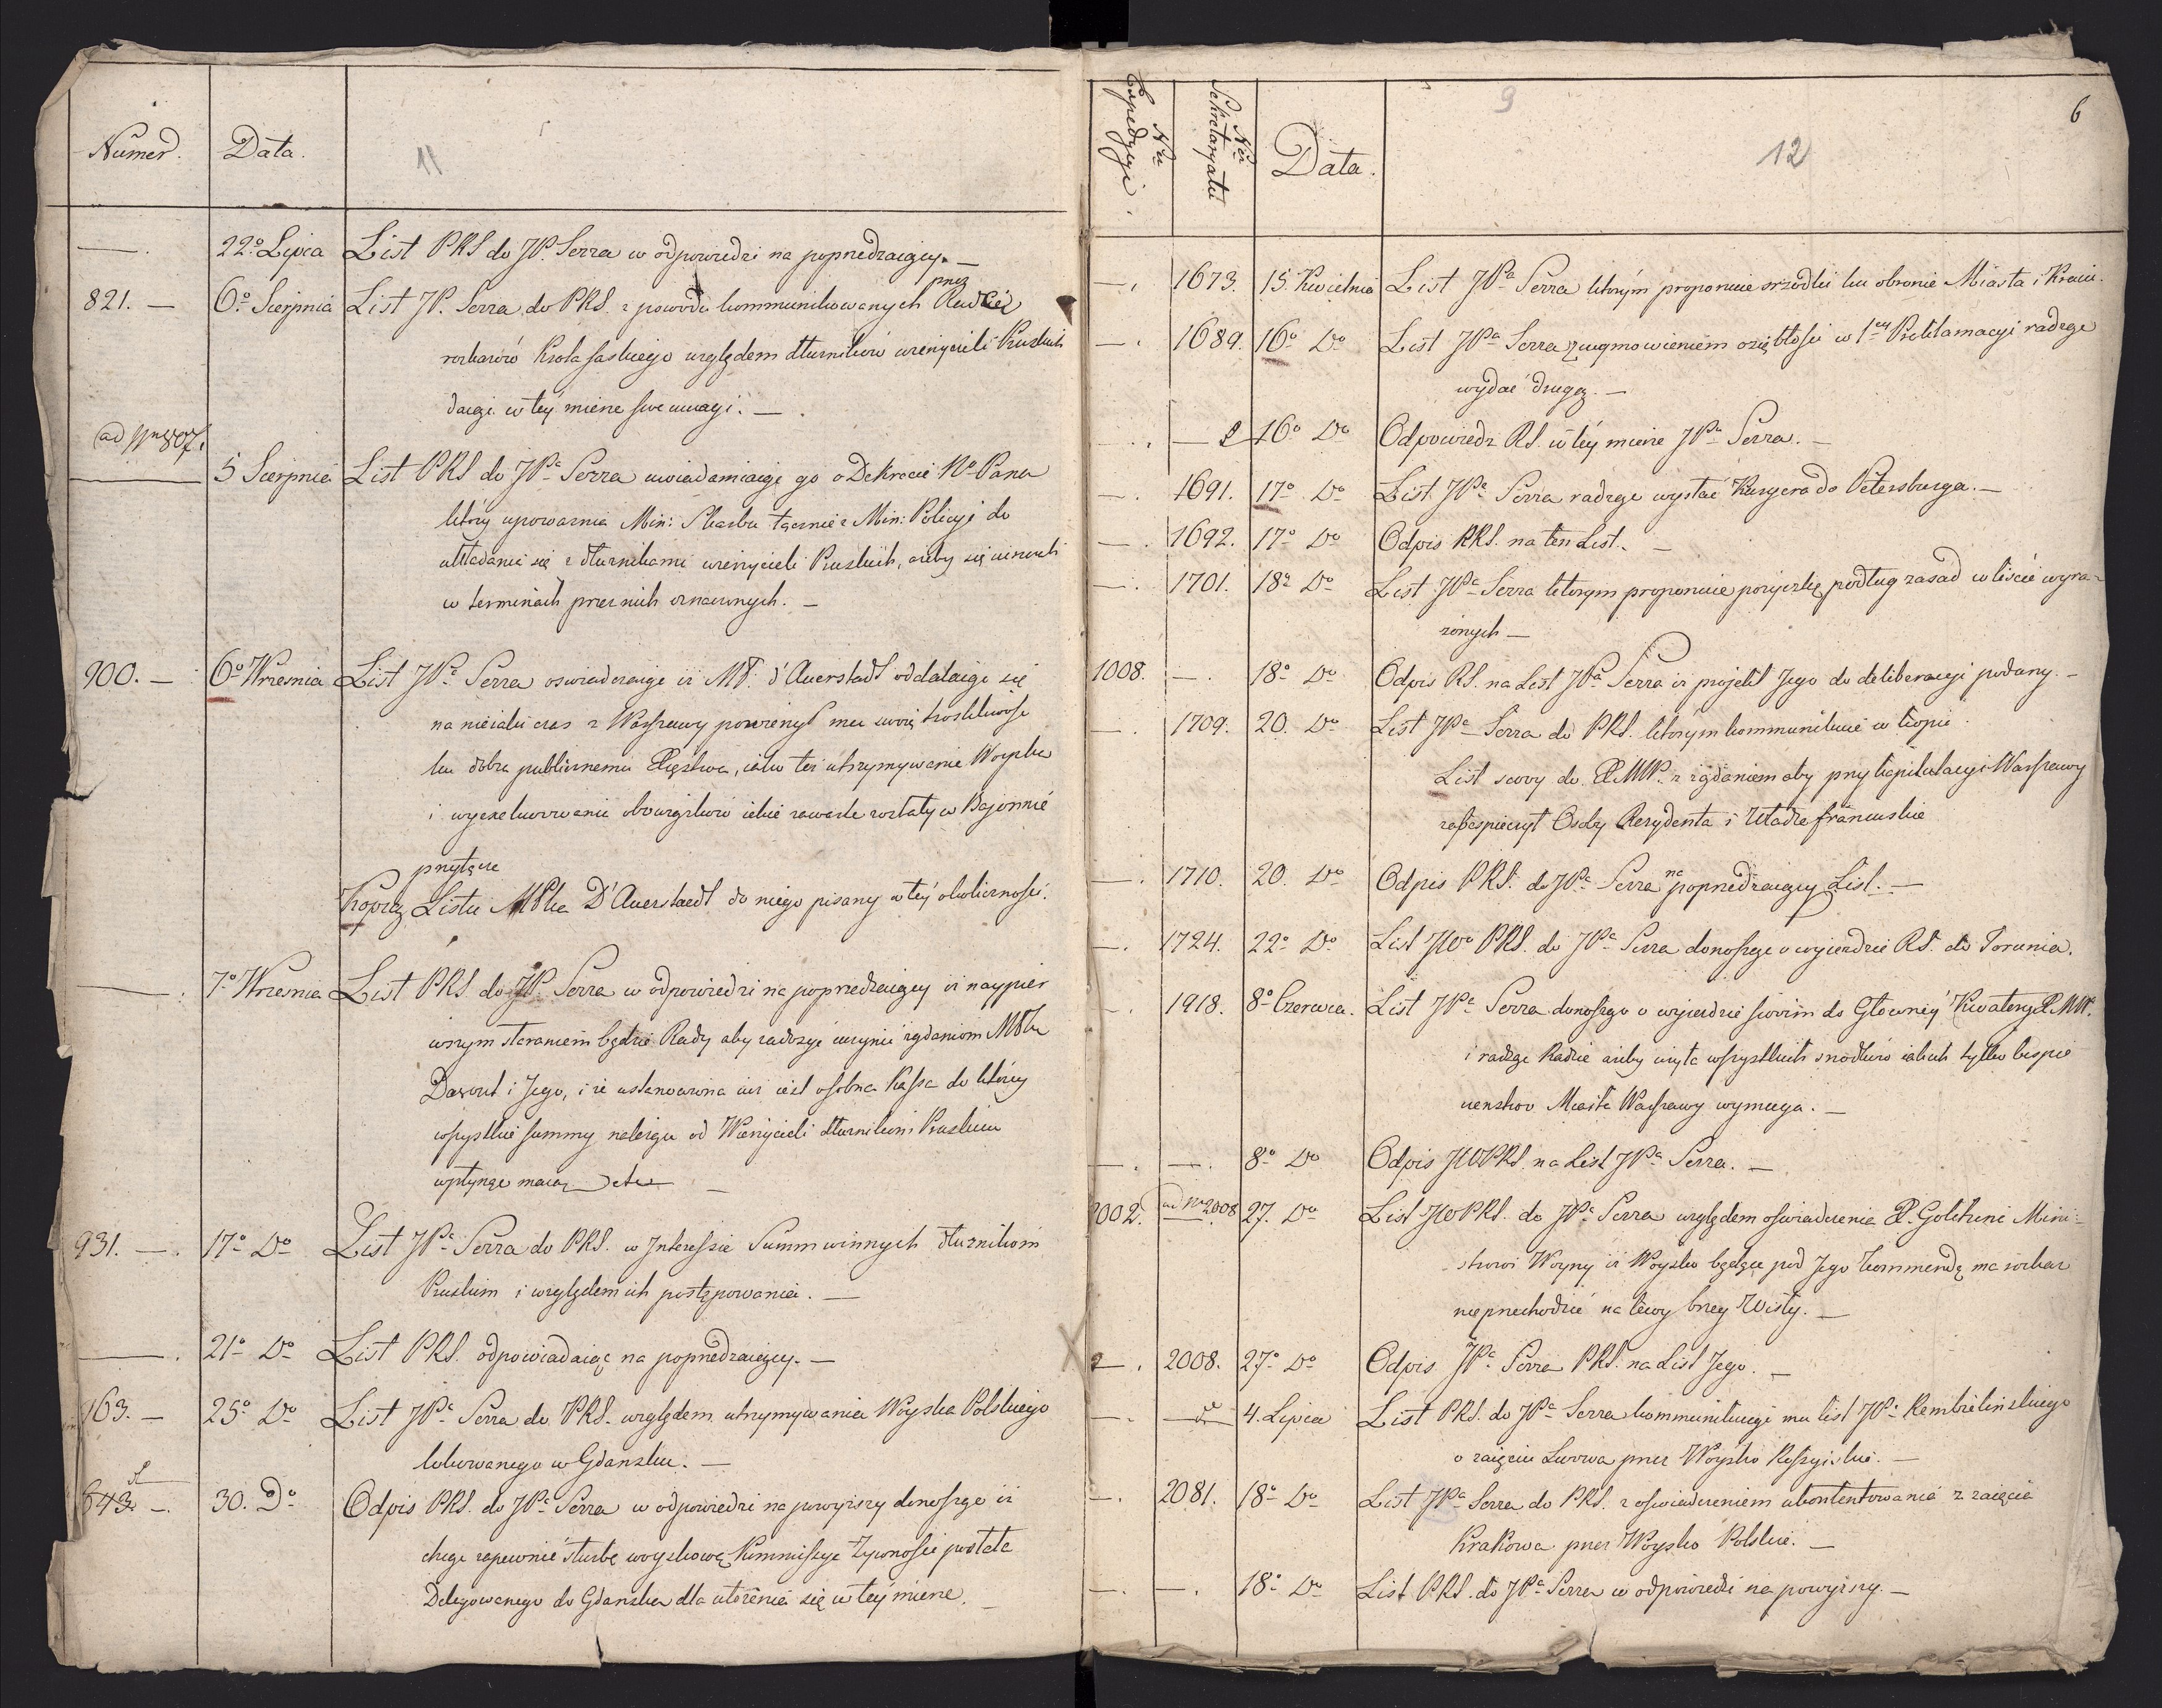 Numer. Data. 11
—. 22º Lipca List PRS do JP. Serra w odpowiedzi na poprzedzaiący. —
821. — 6º Sierpnia List JP. Serra do PRS. z powodu kommunikowanych przez Radcę
rozkazów Krola saskiego względem dłużników wierzycieli Pruskich
daiąc w tey mierze swe uwagi. —
ad Nrm 807.
5 Sierpnia List PRS do JPa Serra uwiadamiaiąc go o Dekrecie No Pana
który upoważnia Min: Skarbu łącznie z Min: Policyi do
układania się z dłużnikami wierzycieli Pruskich, ażeby się uiszczali
w terminach przez nich oznaczonych. —
900. — 6º Wrzesnia List JPa Serra oswiadczaiąc iż MP. d'Auerstadt oddalaiąc się
na nieiaki czas z Warszawy powierzył mu swoią troskliwość
ku dobru publicznemu Xięstwa, iako też utrzymywanie Woyska
i wyexekwowanie obowiązków iakie zawarte zostały w Bajonnie
przyłącza
Kopią Listu MPka D'Auerstaedt do niego pisany w tey okoliczności.
—. 7º Wrzesnia List PRS do JP. Serra w odpowiedzi na poprzedzaiący iż naypier
wszym staraniem będzie Rady aby zadosyć uczynić żądaniom MPka
Davout i Jego, i że ustanowiona iuż iest osobna Kassa do którey
wszystkie summy należące od Wierzycieli dłużników Pruskich
wpłynąć maią etc —
931. —. 17º Dº List JPa Serra do PRS. w Interessie Summ winnych dłużnikom
Pruskim i względem ich postępowania. —
—. 21º Dº List PRS. odpowiadaiąc na poprzedzaiący. —
963. — 25º Dº List JPa Serra do PRS. względem utrzymywania Woyska Polskiego
lokowanego w Gdansku. —
843. —. 30. Dº Odpis PRS. do JPa Serra w odpowiedzi na powyższy donosząc iż
chcąc zapewnić służbę woyskową Kommissya Żywności posłała
Delegowanego do Gdanska dla ułożenia się w tey mierze. —
Nra Expedycyi. Nra Sekretaryatu Data. 9 12 6
—. 1673. 15. Kwietnia List JPa Serra którym proponuie srzodki ku obronie Miasta i Kraiu.
—. 1689. 16º Dº List JPa Serra z wymowieniem oziębłości w 1ey Proklamacyi radząc
wydać drugą. —
—. — 16º Dº Odpowiedz RS. w tey mierze JPa Serra. —
—. 1691. 17º Dº List JPa Serra radząc wysłać Kuryera do Petersburga. —
—. 1692. 17º Dº Odpis PRS. na ten List. —
—. 1701. 18º Dº List JPa Serra którym proponuie pożyczkę podług zasad w liście wyra-
żonych —
1008. —. 18º Dº Odpis RS. na List JPa Serra iż projekt Jego do deliberacyi podany. —
—. 1709. 20. Dº List JPa Serra do PRS. którym kommunikuie w kopii
List swoy do XMW. z żądaniem aby przy kapitulacyi Warszawy
zabespieczył Osoby Rezydenta i Władze francuskie
—. 1710. 20. Dº Odpis PRS. do JPa Serra na poprzedzaiący List. —
—. 1724. 22º Dº List JWº PRS. do JPa Serra donosząc o wyieździe RS. do Torunia.
—. 1918. 8º Czerwca. List JPa Serra donosząc o wyieździe swoim do Główney Kwatery XMW.
i radząc Radzie ażeby użyła wszystkich srzodków iakich tylko bespie
czenstwo Miasta Warszawy wymaga. —
—. —. 8º Dº Odpis JWPRS. na List JPa Serra. —
2002. ad Nr 2008 27. Dº List JWPRS. do JPa Serra względem oswiadczenia X. Golitzini Mini-
strowi Woyny iż Woysko będące pod Jego kommendą ma rozkaz
nieprzechodzić na lewy brzeg Wisły. —
—. 2008. 27º Dº Odpis JPa Serra PRS. na List Jego. —
—. — 4. Lipca List PRS. do JPa Serra kommunikuiąc mu list JPa Rembielinskiego
o zaięciu Lwowa przez Woysko Rossyiskie. —
—. 2081. 18º Dº List JPa Serra do PRS. z oswiadczeniem ukontentowania z zaięcia
Krakowa przez Woysko Polskie. —
—. —. 18º Dº List PRS. do JPa Serra w odpowiedzi na powyższy. —